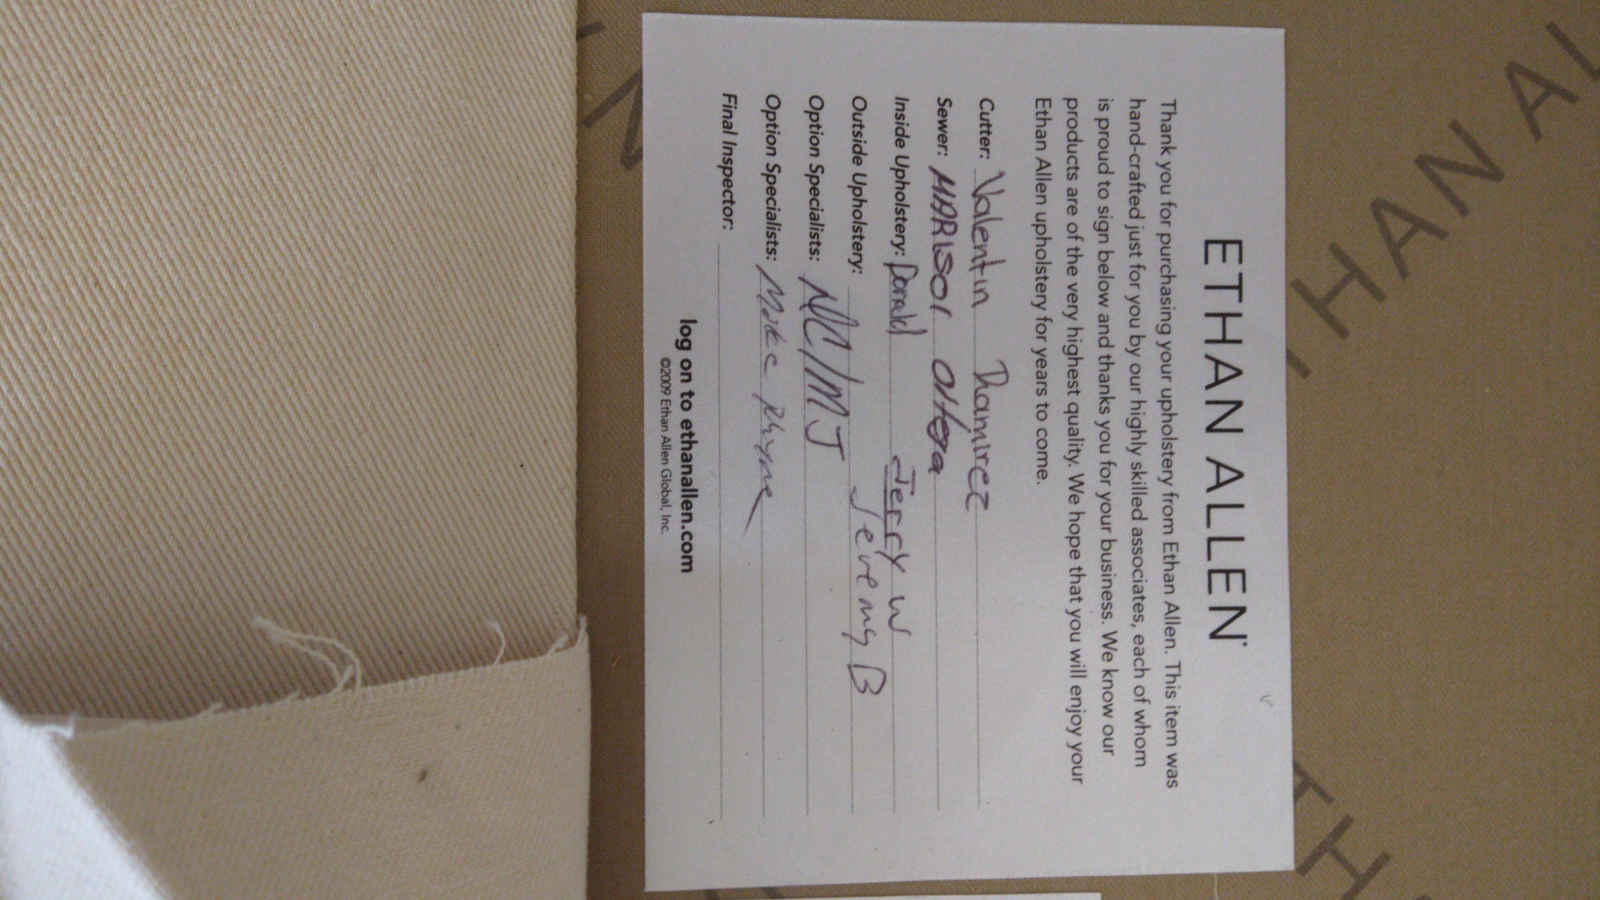 ETHAN ALLEN®
Thank you for purchasing your upholstery from Ethan Allen. This item was
hand-crafted just for you by our highly skilled associates, each of whom
is proud to sign below and thanks you for your business. We know our
products are of the very highest quality. We hope that you will enjoy your
Ethan Allen upholstery for years to come.
Cutter: Valentin Ramirez
Sewer: MARISOL
Inside Upholstery: Donald Jerry W
Outside Upholstery: Jeremy B
Option Specialists: NC/MJ
Option Specialists: Mike Rhyne
Final Inspector:
log on to ethanallen.com
©2009 Ethan Allen Global, Inc.
HAN AL
THAN
TH